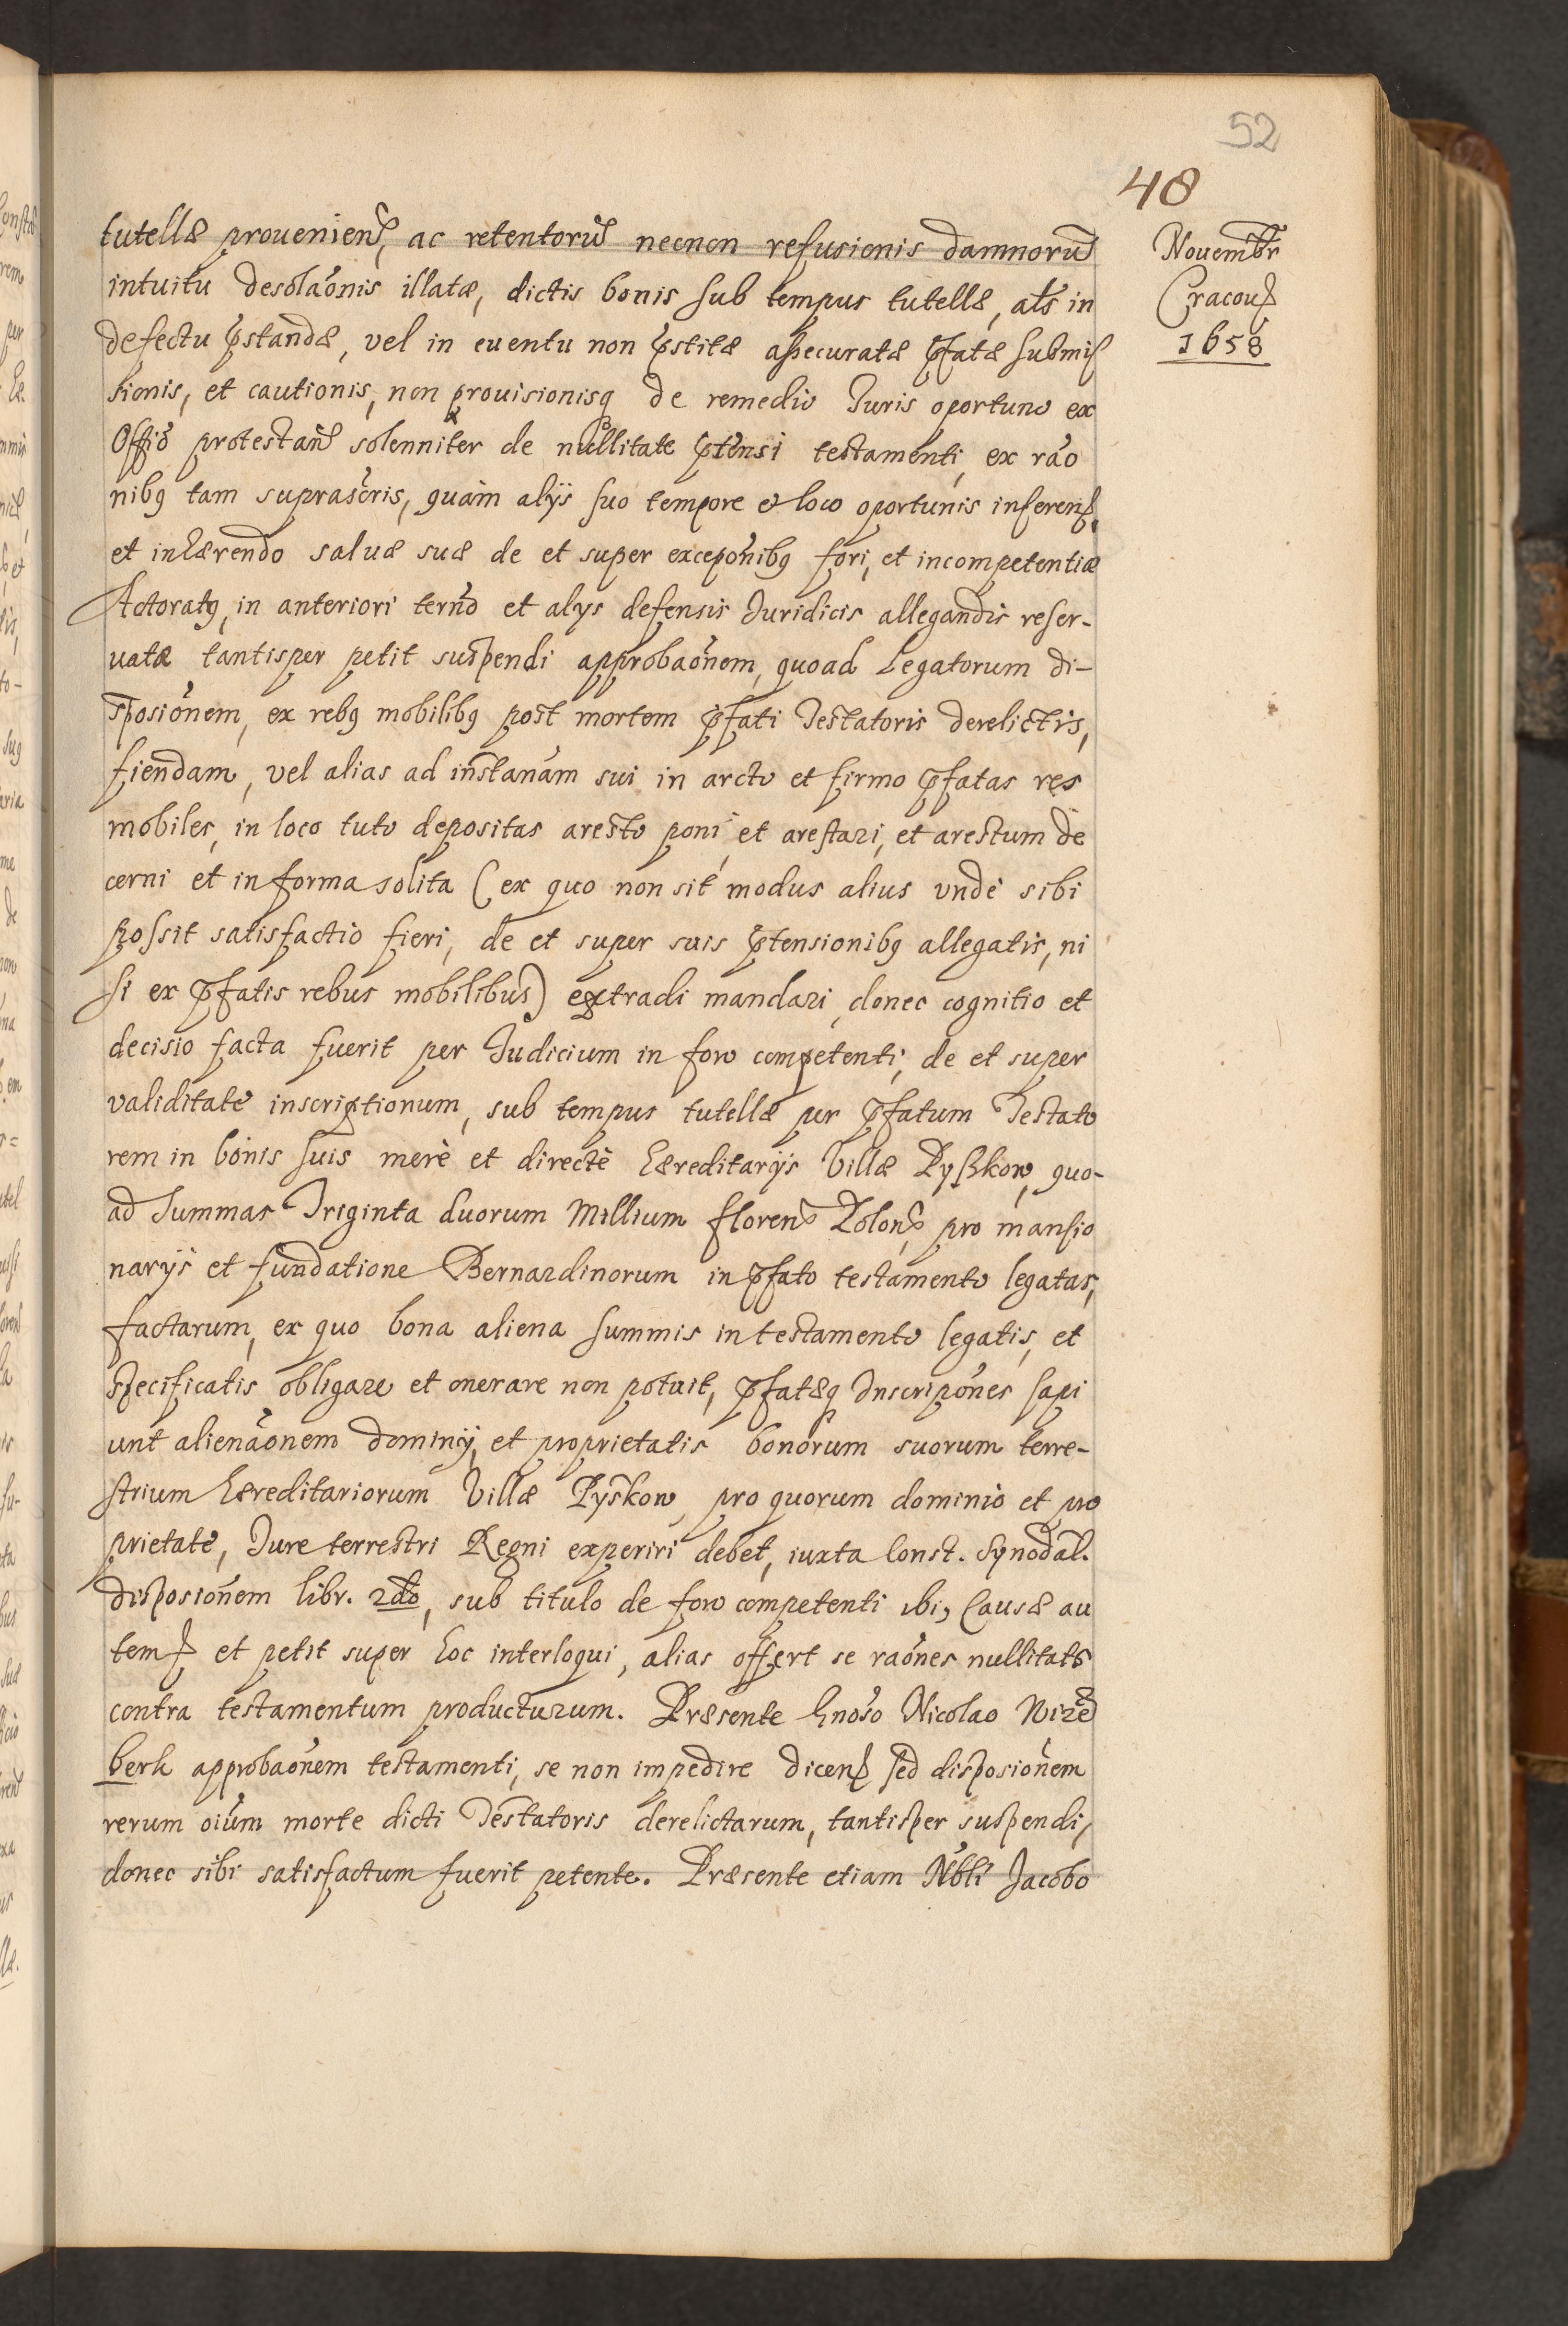 52
48
Nouembr
Cracou
1658
tutellæ prouenien, ac retentorũ necnon refusionis damnorũ
intuitu desolãonis illatæ, dictis bonis sub tempus tutellæ, als in
defectu p̃standæ, vel in euentu non p̃stitæ assecuratæ p̃fatæ submis
sionis, et cautionis, non prouisionisq de remedio Iuris oportuno ex
Offio protestan solenniter de nullitate p̃tensi testamenti, ex rão
nibq tam suprascris, quàm alijs suo tempore & loco oportunis inferen,
et inhærendo saluæ suæ de et super exceponibq fori, et incompetentiæ
Actoratq, in anteriori termo et alys defensis Iuridicis allegandis reser-
uatæ tantisper petit suspendi approbaõnem, quoad Legatorum di-
sposiõnem, ex rebq mobilibq post mortem p̃fati Testatoris derelictis,
fiendam, vel alias ad instanam sui in arcto et firmo p̃fatas res
mobiles, in loco tuto depositas aresto poni, et arestari, et arestum de
cerni et in forma solita (ex quo non sit modus alius vnde sibi
possit satisfactio fieri, de et super suis p̃tensionibq allegatis, ni
si ex p̃fatis rebus mobilibus) extradi mandari, donec cognitio et
decisio facta fuerit per Iudicium in foro competenti, de et super
validitate inscriptionum, sub tempus tutellæ per p̃fatum Testato
rem in bonis suis merè et directè hæreditarijs Villæ Pyszkow, quo-
ad Summas Triginta duorum Millium floren Polon, pro mansio
narijs et fundatione Bernardinorum in p̃fato testamento legatas,
factarum, ex quo bona aliena summis in testamento legatis, et
specificatis obligare et onerare non potuit, p̃fatæq Inscripones sapi
unt alienãonem dominij, et proprietatis bonorum suorum terre-
strium hæreditariorum Villæ Pyskow, pro quorum dominio et pro
prietate, Iure terrestri Regni experiri debet, iuxta Const. Synodal.
disposiõnem libr. 2do, sub titulo de foro competenti ibi, Causæ au
tem et petit super hoc interloqui, alias offert se raões nullitatis
contra testamentum producturum. Præsente Gnoso Nicolao Nire
berk approbaõnem testamenti, se non impedire dicen sed disposiõnem
rerum oium morte dicti Testatoris derelictarum, tantisper suspendi,
donec sibi satisfactum fuerit petente. Præsente etiam Nbli Jacobo